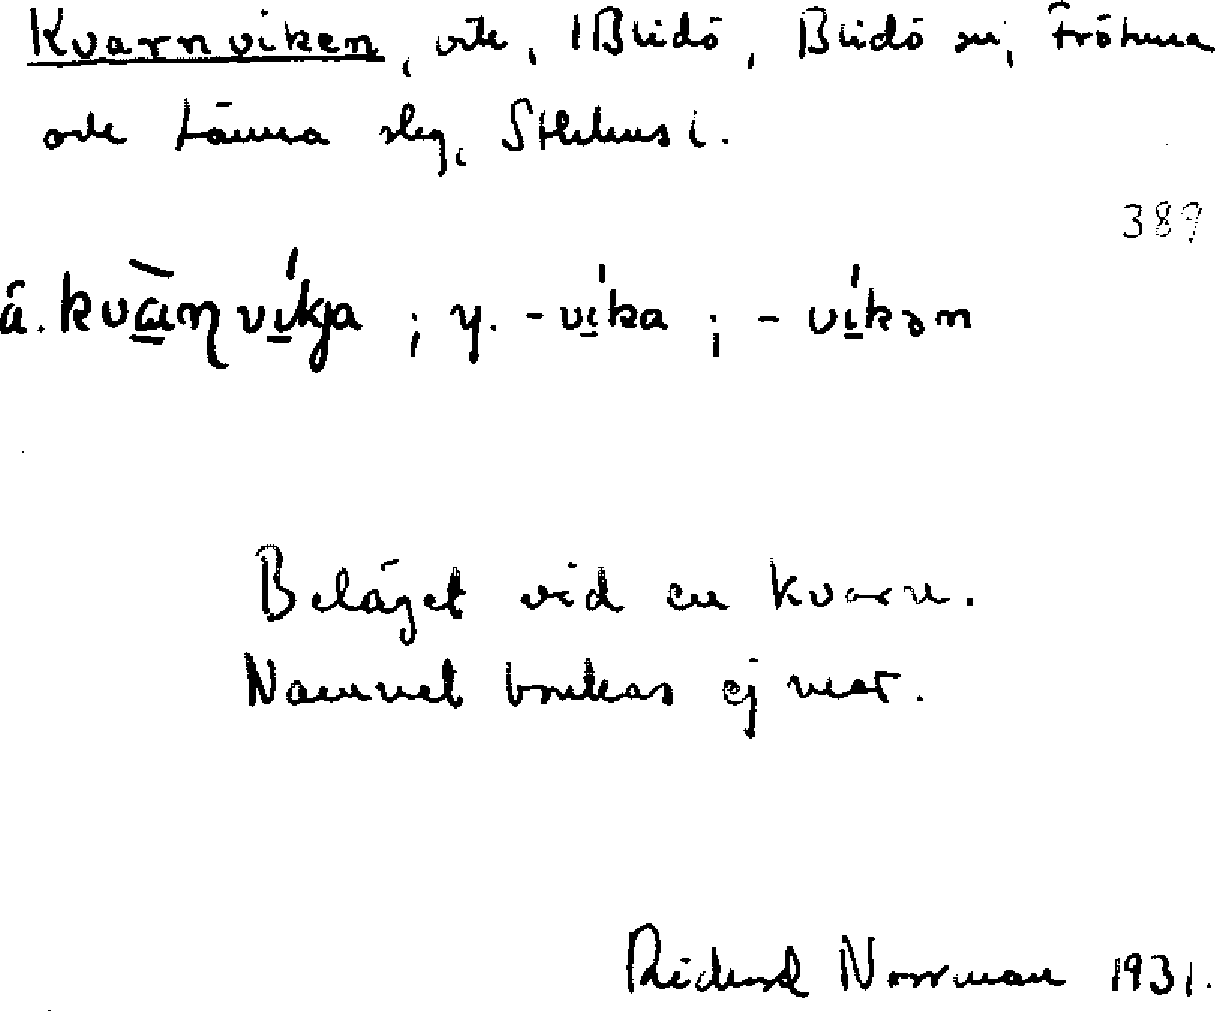 Kvarnviken, vik, 1 Blidö, Blidö sn, Frötuna
och Länna slg, Sthlms l.
389
ä. kvà̱ɳví̱kja ; y. -ví̱ka ; -ví̱kən
Beläget vid en kvarn.
Namnet brukas ej mer.
Rickard Norrman 1931.